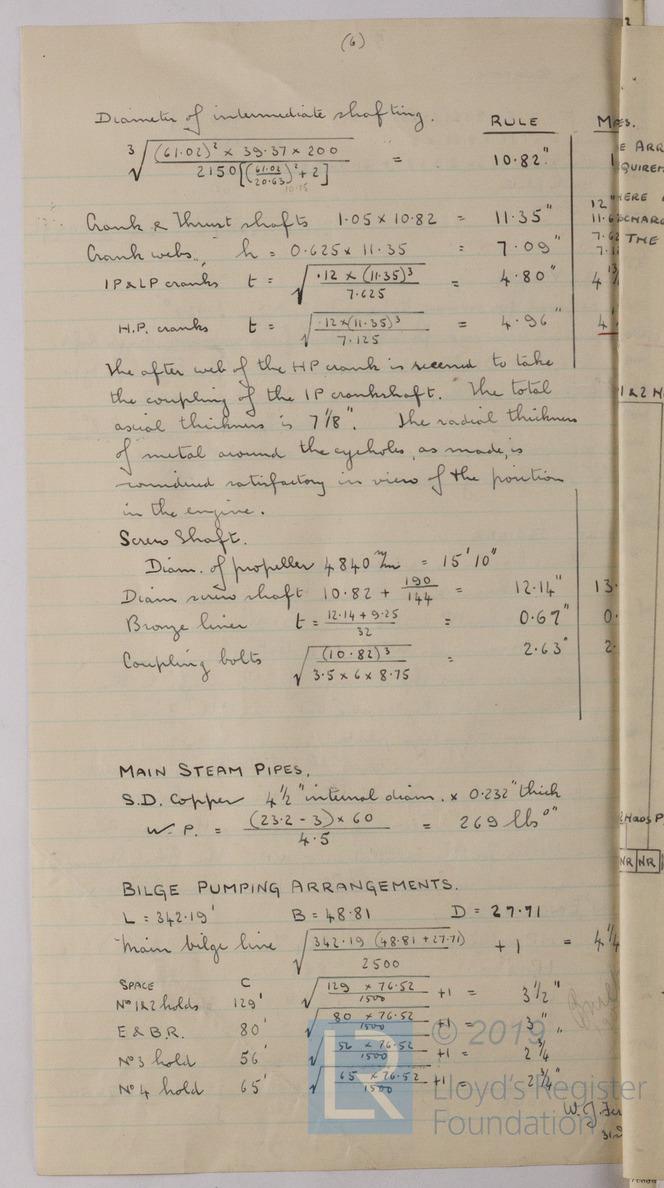 (6)
Diameter of intermediate shafting. RULE
∛ (61.02)² × 39.37 × 200 / 2150[(61.02/20.63)² + 2] = 10.82"
Crank & Thrust shafts 1.05 × 10.82 = 11.35"
Crank webs, h = 0.625 × 11.35 = 7.09"
IP & LP cranks t = √ .12 × (11.35)³ / 7.625 = 4.80"
H.P. cranks t = √ .12 × (11.35)³ / 7.125 = 4.96"
The after web of the HP crank is to take
the coupling of the IP crankshaft. The total
axial thickness is 7 1/8". The radial thickness
of metal around the eyeholes, as made, is
considered satisfactory in view of the position
in the engine.
Screw Shaft.
Diam. of propeller 4840 m/m = 15' 10"
Diam screw shaft 10.82 + 190/144 = 12.14"
Bronze liner t = 12.14 + 9.25 / 32 = 0.67"
Coupling bolts √ (10.82)³ / 3.5 × 6 × 8.75 = 2.63"
MAIN STEAM PIPES.
S.D. Copper 4 1/2" internal diam. × 0.232" thick
W.P. = (23.2 - 3) × 60 / 4.5 = 269 lbs □"
BILGE PUMPING ARRANGEMENTS.
L = 342.19' B = 48.81 D = 27.71
Main bilge line √ 342.19 (48.81 + 27.71) / 2500 + 1 = 4 1/4
SPACE C
Nº 1 & 2 holds 129' √ 129 × 76.52 / 1500 + 1 = 3 1/2"
E & B.R. 80' √ 80 × 76.52 / 1500 + 1 = 3"
Nº 3 hold 56' √ 56 × 76.52 / 1500 + 1 = 2 3/4
Nº 4 hold 65' √ 65 × 76.52 / 1500 + 1 = 2 3/4"
© 2019
Lloyd's Register
Foundation
LR